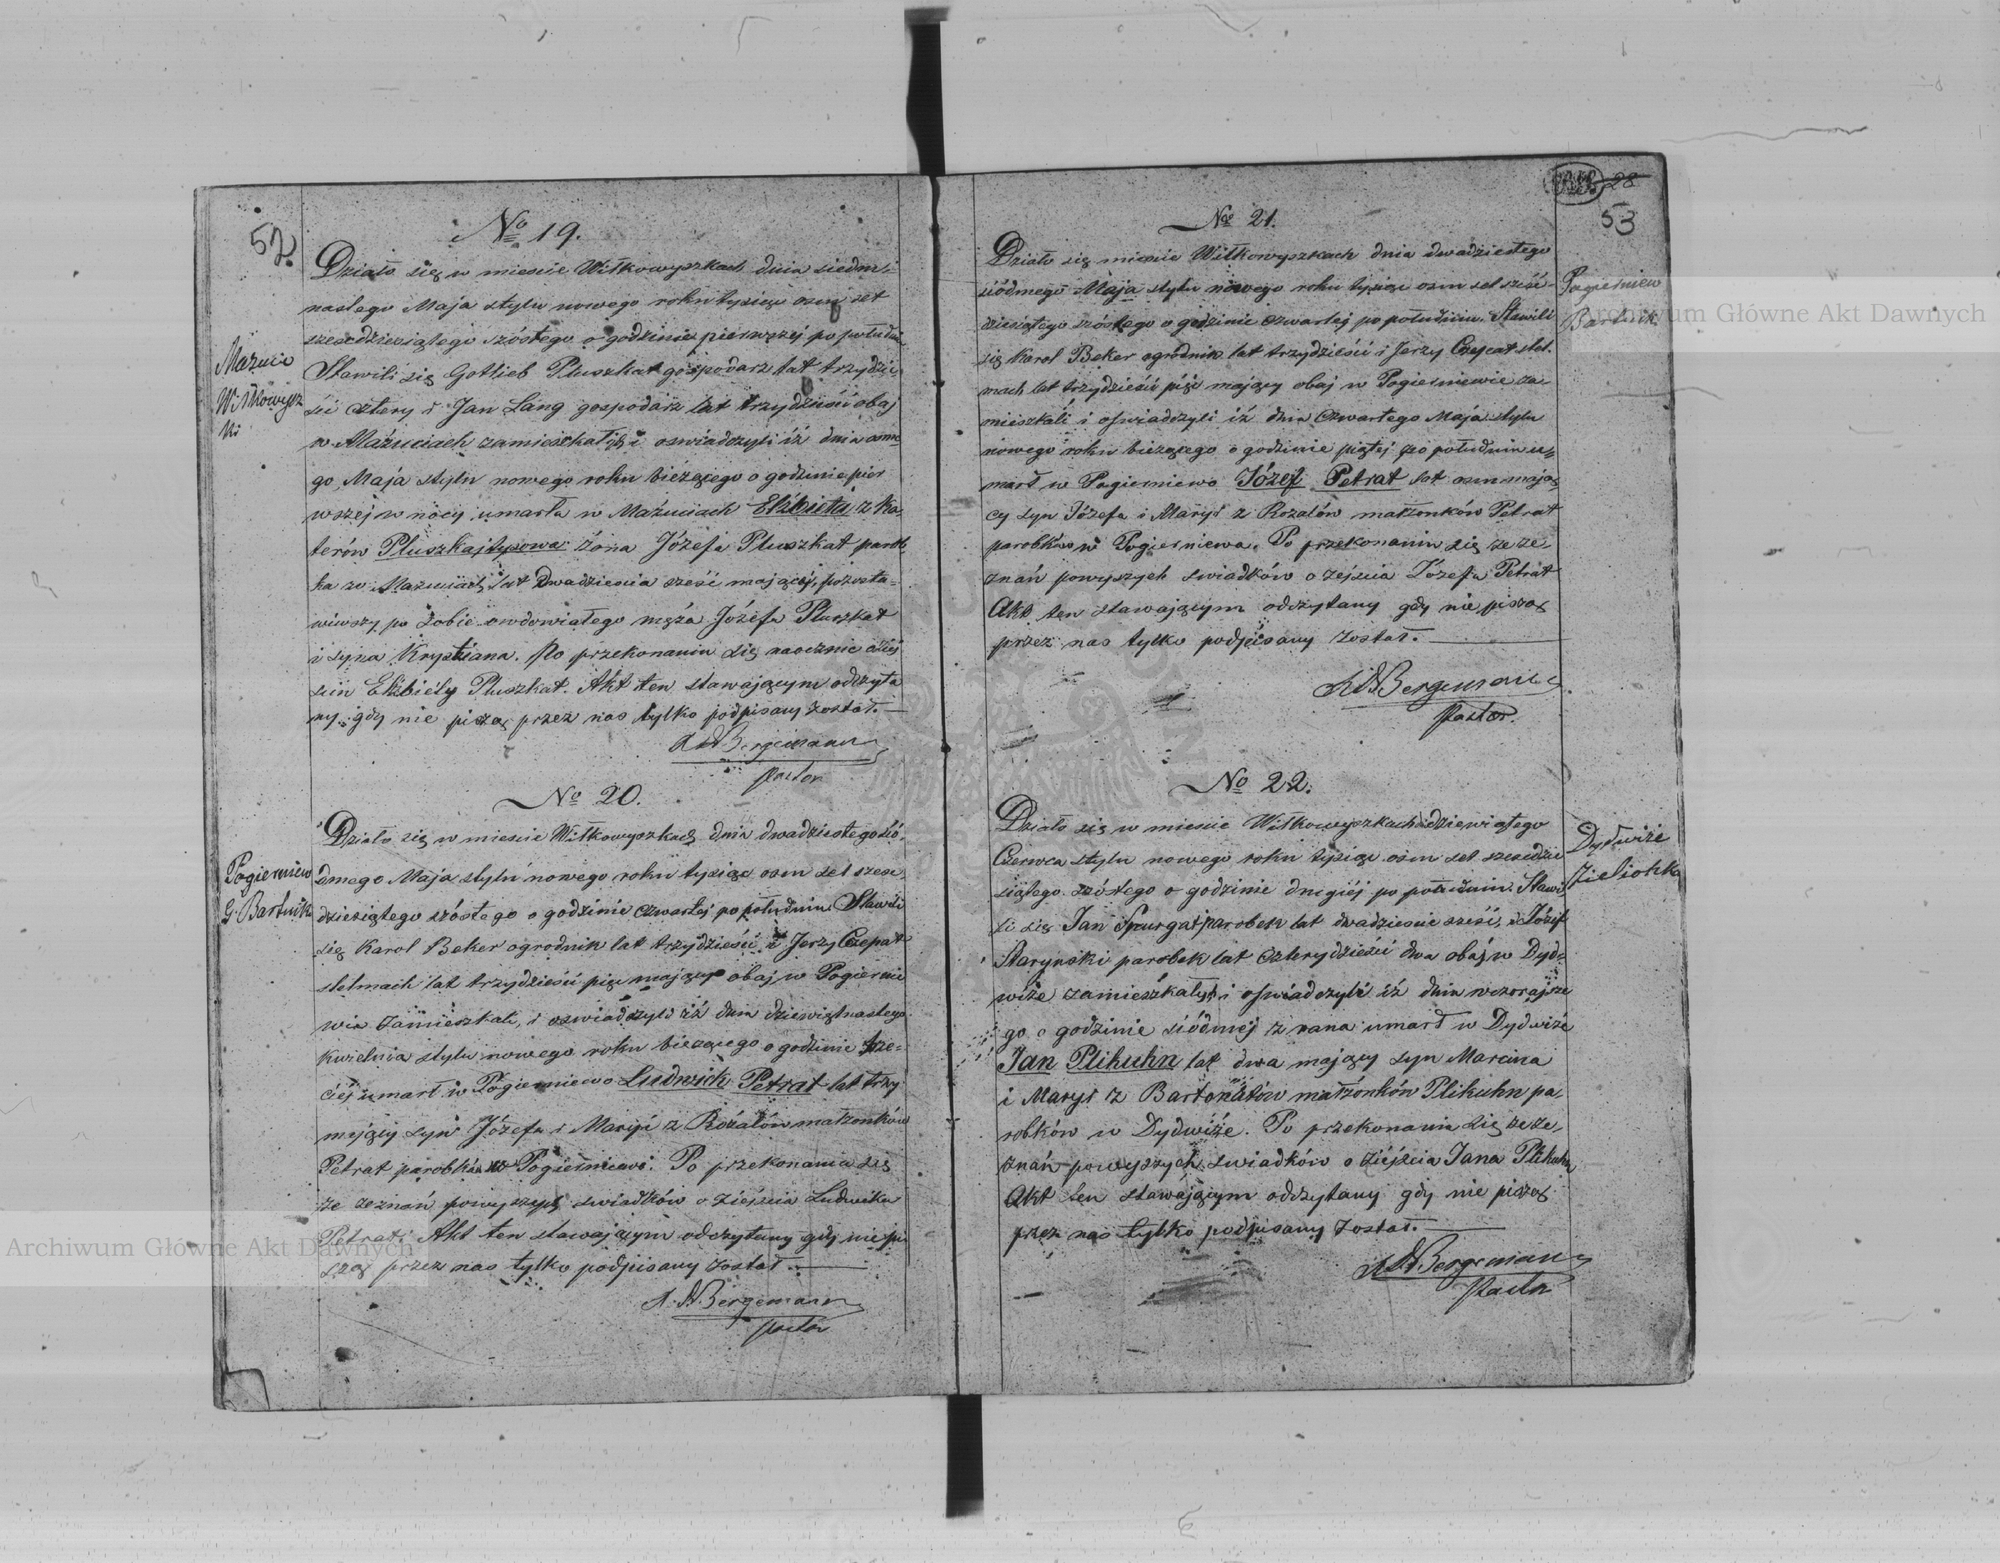 52.
No 19.
Działo się w miescie Wiłkowyszkach dnia siedm-
nastego Maja stylu nowego roku tysiąc osm set
szescdziesiątego szóstego o godzinie pierwszej po południu
Mażucie
Wiłkowysz
ki
Stawili się Gotlieb Pluszkat gospodarz lat trzydzie-
ści cztery i Jan Lang gospodarz lat trzydzieści obaj
w Mażuciach zamieszkali i oswiadczyli iż dnia osme-
go Maja stylu nowego roku bieżącego o godzinie pier
wszej w nocy umarła w Mażuciach Elżbieta z Ka-
terów Pluszkajtysowa żona Józefa Pluszkat parob
ka w Mażuciach lat dwadzieścia sześć mającej, pozosta-
wiwszy po sobie owdowiałego męża Józefa Pluszkat
i syna Krystiana. Po przekonaniu się naocznie o zej
sciu Elżbiéty Pluszkat. Akt ten stawającym odczyta
ny, gdy nie piszą przez nas tylko podpisany został.
Bergemann
Pastor
No 20.
Działo się w mieście Wiłkowyszkach dnia dwudziestego sió-
Pogierniew
G. Bartnik
dmego Maja stylu nowego roku tysiąc osm set szesc-
dziesiątego szóstego o godzinie czwartej po południu. Stawili
się Karol Beker ogrodnik lat trzydzieści i Jerzy Czepat
stelmach lat trzydzieści pięć mający obaj w Pogiernie
wia zamieszkali, i oswiadczyli iż dnia dziewiętnastego
kwietnia stylu nowego roku bieżącego o godzinie trze-
ciéj umarł w Pogierniewo Ludwick Petrat lat trzy
mający syn Józefa i Maryi z Rózalów małżonków
Petrat parobków w Pogierniewo. Po przekonaniu się
ze zeznań powyszych swiadków o ziejscia Ludwika
Petrat. Akt ten stawającym odczytany gdy nie pi
szą przez nas tylko podpisany został.
Bergemann
Pastor
28
53
No 21.
Działo się miescie Wiłkowyszkach dnia dwadziestego
Pogierniew
Bartnik
siódmego Maja stylu nowego roku tysiąc osm set sześć-
dziesiątego szóstego o godzinie czwartej po południu. Stawili
się Karol Beker ogrodnik lat trzydzieści i Jerzy Czepat stel-
mach lat trzydzieści pięć mający obaj w Pogierniewie za-
mieszkali i oswiadczyli iż dnia czwartego Maja stylu
nowego roku bieżącego o godzinie piątej po południu u-
marł w Pogierniewo Józef Petrat lat osm mają-
cy syn Józefa i Maryi z Rozalów małżonków Petrat
parobków w Pogierniewa. Po przekonaniu się ze ze-
znań powyszych swiadków o zejscia Józefa Petrat
Akt ten stawającym odczytany gdy nie piszą
przez nas tylko podpisany został.
Bergemann
Pastor.
No 22.
Działo się w miescie Wiłkowyszkach dziewiątego
Dydwiże
Zielionka
Czerwca stylu nowego roku tysiąc osm set szescdzie
siątego szóstego o godzinie drugiéj po południu. Stawi
li się Jan Spurgat parobek lat dwadziescie sześć, i Józef
Starynski parobek lat czterydzieści dwa obaj w Dyd-
wiże zamieszkałych i oswiadczyli iż dnia wczorajsze
go o godzinie siódméj z rana umarł w Dydwiże
Jan Plikuhn lat dwa mający syn Marcina
i Maryi z Bartonatów małżonków Plikuhn pa-
robków w Dydwiże. Po przekonania się ze ze-
znań powyszych swiadków o ziéjscia Jana Plikuhn
Akt ten stawającym odczytany gdy nie piszą
przez nas tylko podpisany został.
Bergemann
Pastor
Archiwum Główne Akt Dawnych
Archiwum Główne Akt Dawnych